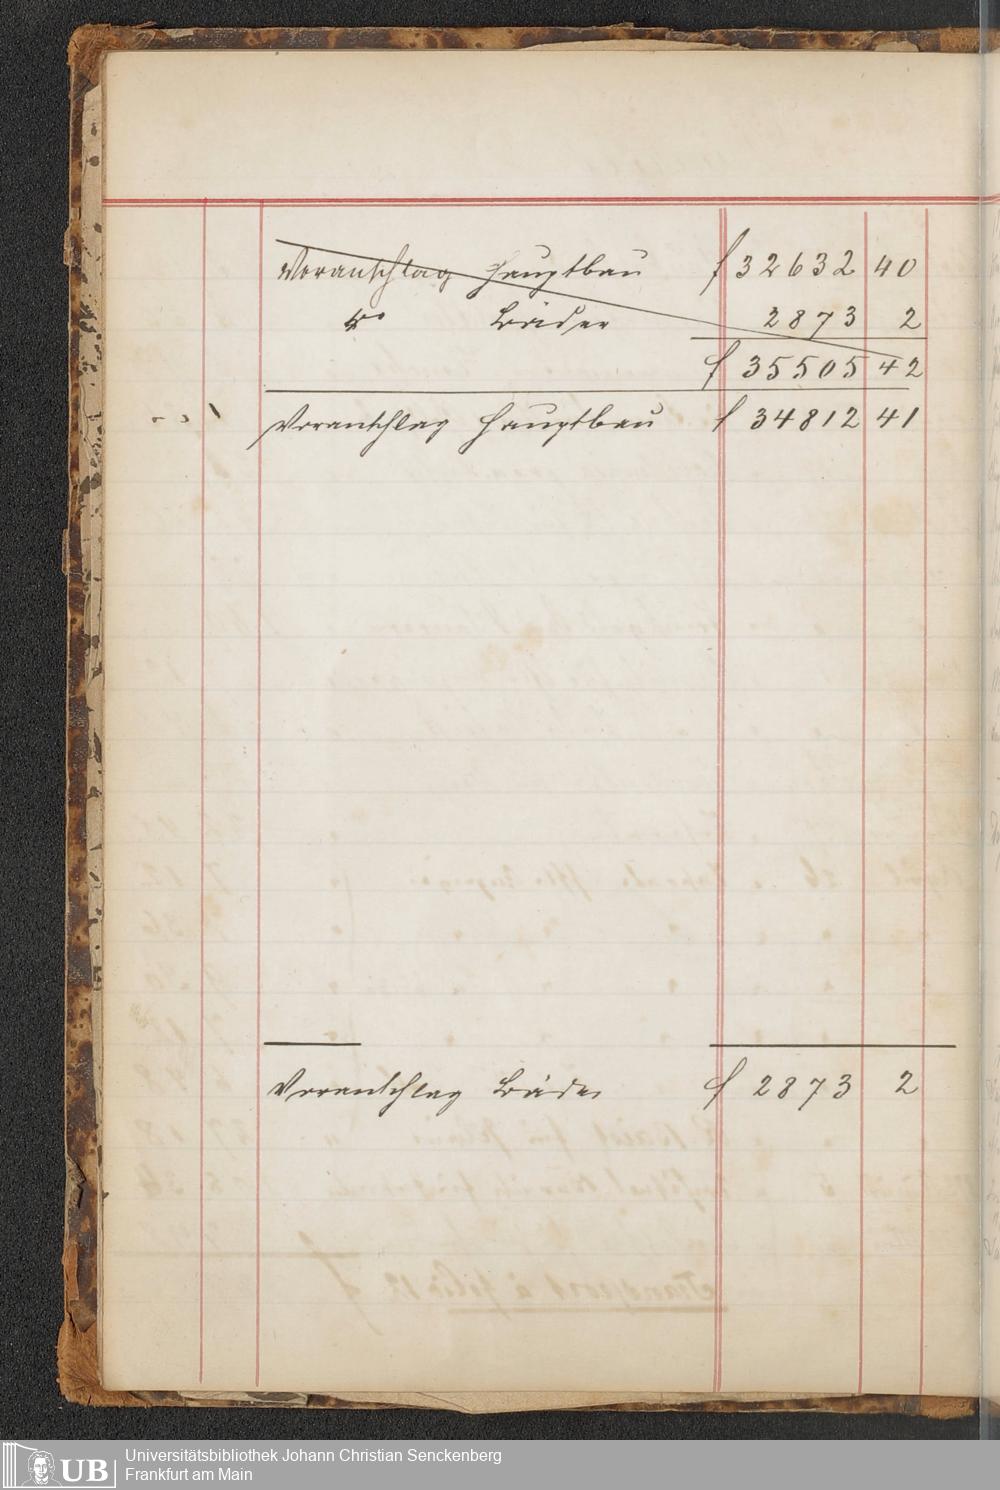 Voranschlag Hauptbau f 32632 40
do Bäder 2873 2
f 35505 42
Voranschlag Hauptbau f 34812 41
Voranschlag Bäder f 2873 2
UB Universitätsbibliothek Johann Christian Senckenberg
Frankfurt am Main